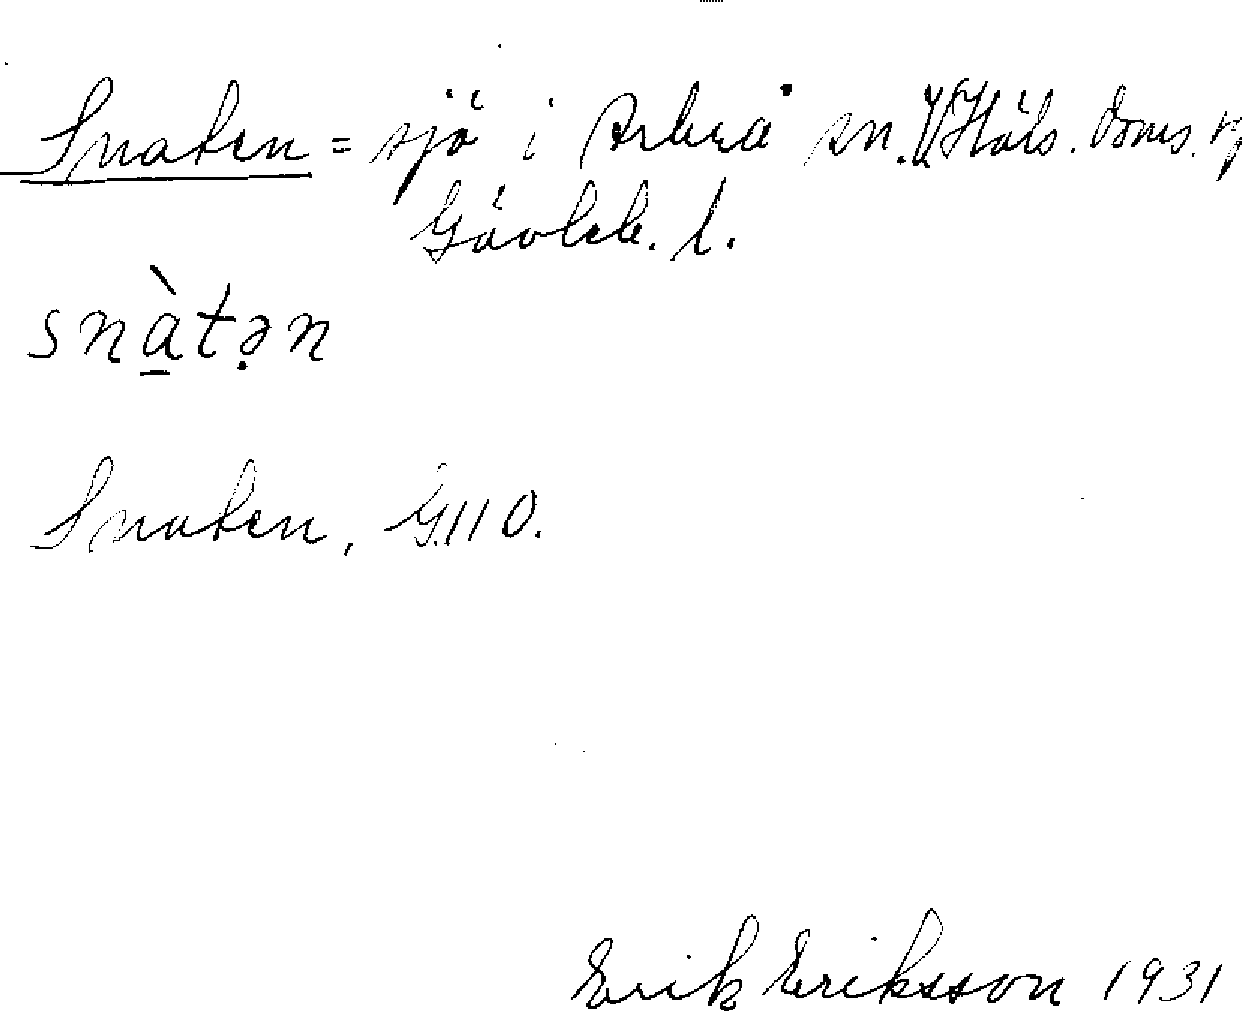 Snaten = sjö i Arbrå sn. V Häls. doms.
Gävleb. l.
snàtən
Snaten, G.110.
Erik Eriksson 1931